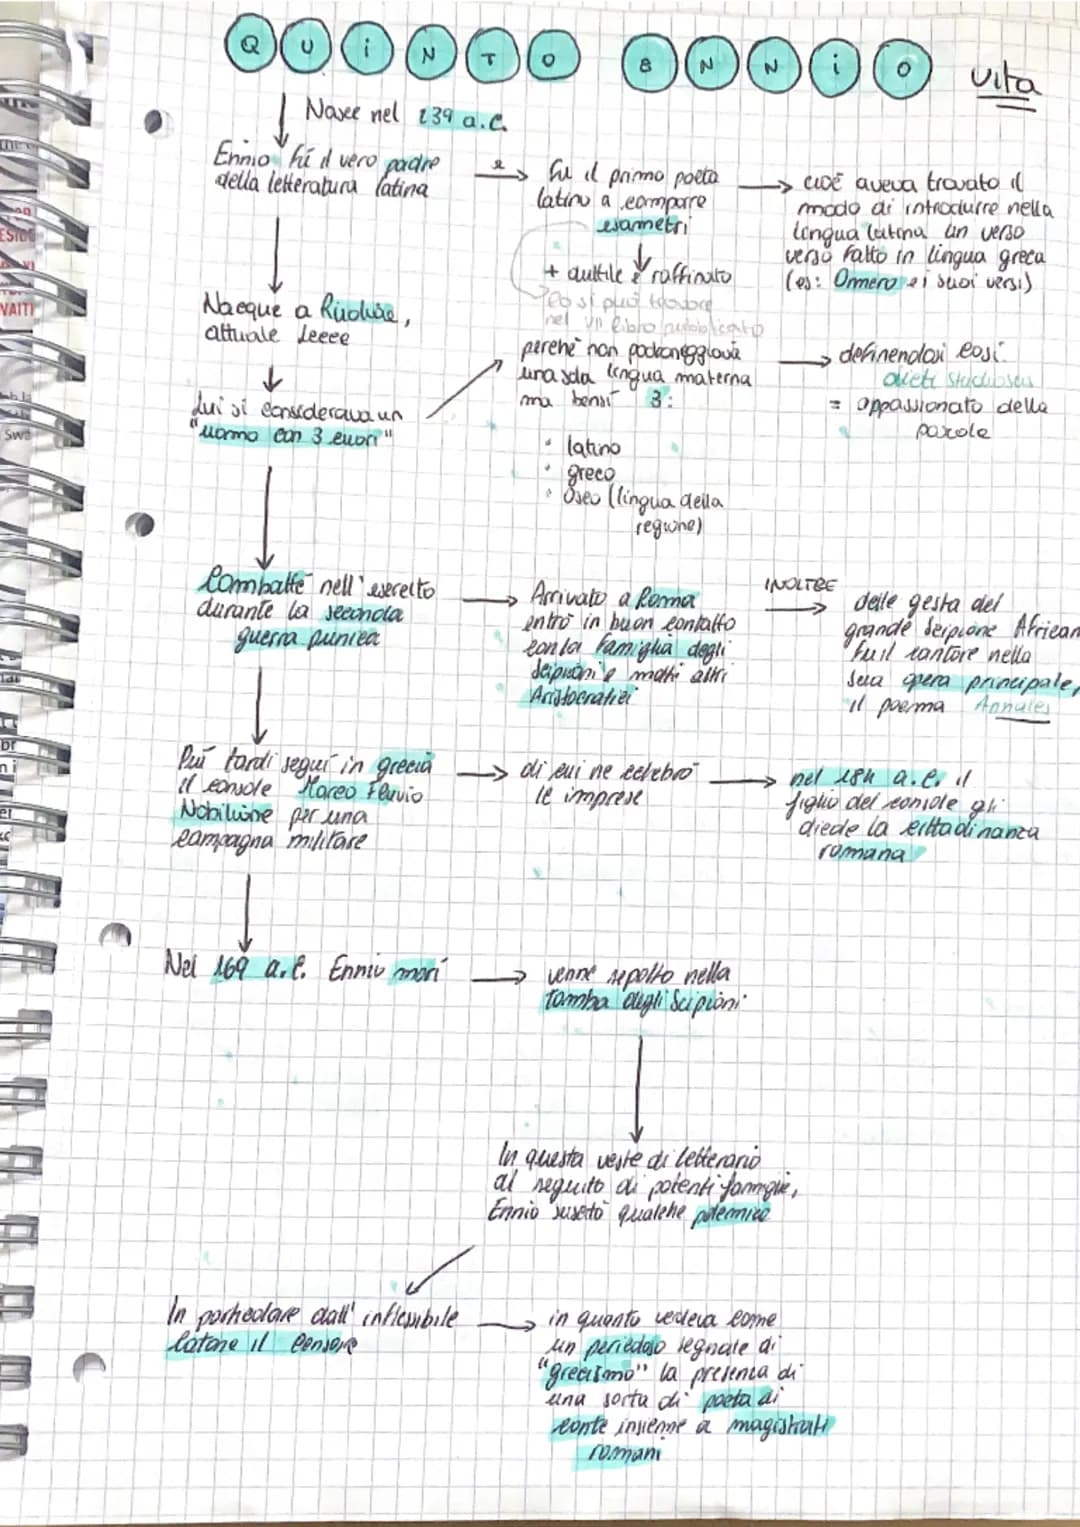 QUINTO ENNIO vita
Nasce nel 239 a.C.
Ennio fù il vero padre
della letteratura latina
e
fu il primo poeta
latino a comporre
esametri
cioè aveva trovato il
modo di introdurre nella
lingua latina un verso
verso fatto in lingua greca
(es: Omero e i suoi versi)
+ duttile e raffinato
lo si può trovare
nel VII libro pubblicato
Nacque a Rudiae,
attuale Lecce
Lui si considerava un
"uomo con 3 cuori"
perchè non padroneggiava
una sola lingua materna
ma bensì 3:
• latino
• greco
• Osco (lingua della
regione)
definendosi così
dicti studiosus
= appassionato della
parola
Combattè nell'esercito
durante la seconda
guerra punica
Arrivato a Roma
entrò in buon contatto
con la famiglia degli
Scipioni e molti altri
Aristocratici
INOLTRE
delle gesta del
grande Scipione African
fu il cantore nella
sua opera principale,
il poema Annales
Più tardi seguì in grecia
il console Marco Fluvio
Nobiliore per una
campagna militare
di cui ne celebrò
le imprese
nel 184 a.C. il
figlio del console gli
diede la cittadinanza
romana
Nel 169 a.C. Ennio morì
venne sepolto nella
tomba degli Scipioni
In questa veste di letterario
al seguito di potenti famiglie,
Ennio suscitò qualche polemica
In particolare dall'inflessibile
Catone il Censore
in quanto vedeva come
un pericoloso segnale di
"grecismo" la presenza di
una sorta di poeta di
corte insieme a magistrati
romani